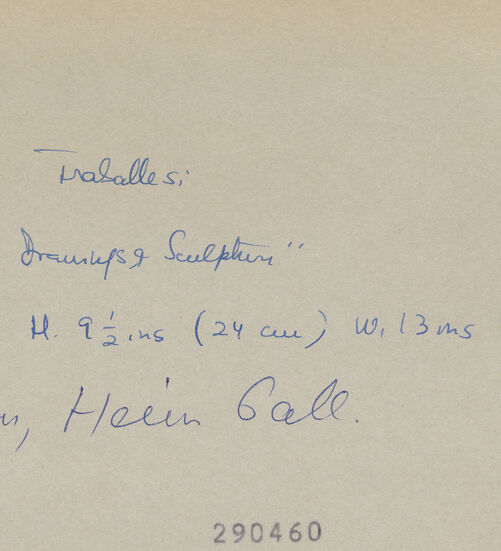 Traballesi
Drawings & Sculpture"
H. 9 1/2 ins (24 cm) W. 13 ins
Heim Gall.
290460